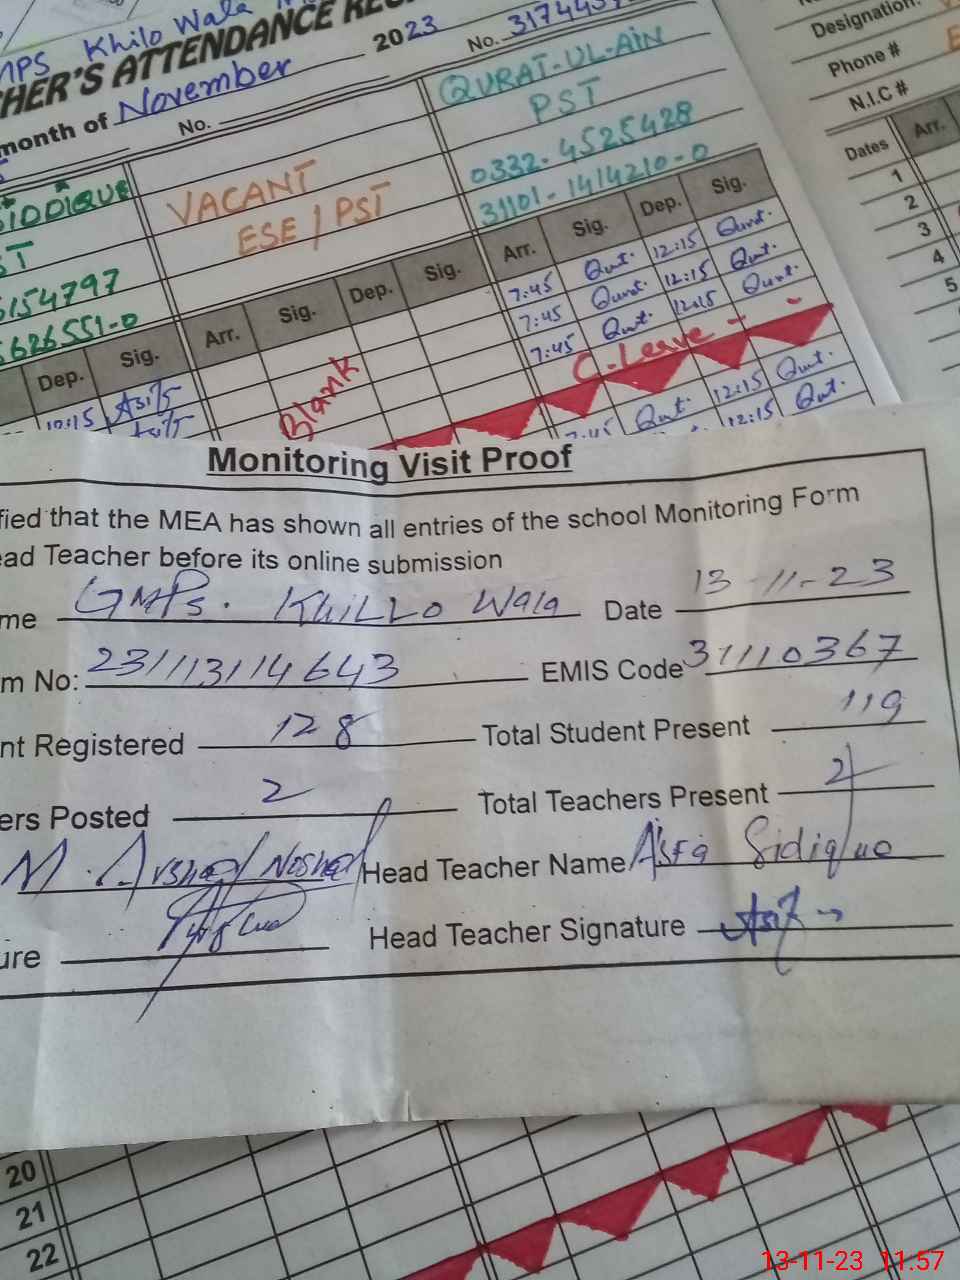 MPS Khilo Wala
HER'S ATTENDANCE RE
month of November 2023 No. 317445
No.
SIDDIQUE
ST
6154797
5626551-0
VACANT
ESE / PST
QURAT-UL-AIN
PST
0332-4525428
31101-1414210-0
Designation:
Phone #
N.I.C #
Dates Arr.
1
2
3
4
5
Dep. Sig. Arr. Sig. Dep. Sig. Arr. Sig. Dep. Sig.
7:45 Qurat. 12:15 Qurat.
7:45 Qurat. 12:15 Qurat.
7:45 Qurat. 12:15 Qurat.
C-Leave -
Blank
7:45 Qurat. 12:15 Qurat.
12:15 Qurat.
Monitoring Visit Proof
fied that the MEA has shown all entries of the school Monitoring Form
ead Teacher before its online submission
me GMPS. Khillo Wala Date 13-11-23
m No: 231113114643 EMIS Code 31110367
nt Registered 128 Total Student Present 119
ers Posted 2 Total Teachers Present 2
M. Arshad Noshad Head Teacher Name Asfa Sidique
ure Head Teacher Signature
20
21
22
13-11-23 11.57